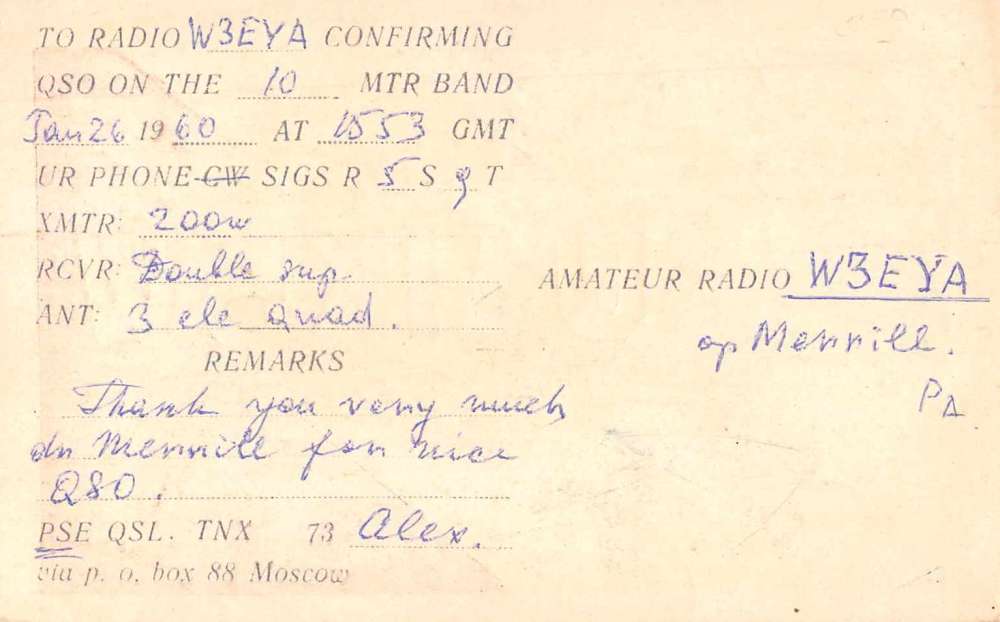 TO RADIO W3EYA CONFIRMING
QSO ON THE 10 MTR BAND
Jan 26 1960 AT 1553 GMT
UR PHONE-CW SIGS R 5 S 9 T
XMTR: 200w
RCVR: Double sup.
ANT: 3 ele Quad.
REMARKS
Thank you very much
dr Merrill for nice
QSO.
PSE QSL. TNX 73 Alex.
via p. o. box 88 Moscow
AMATEUR RADIO W3EYA
op Merrill.
PA